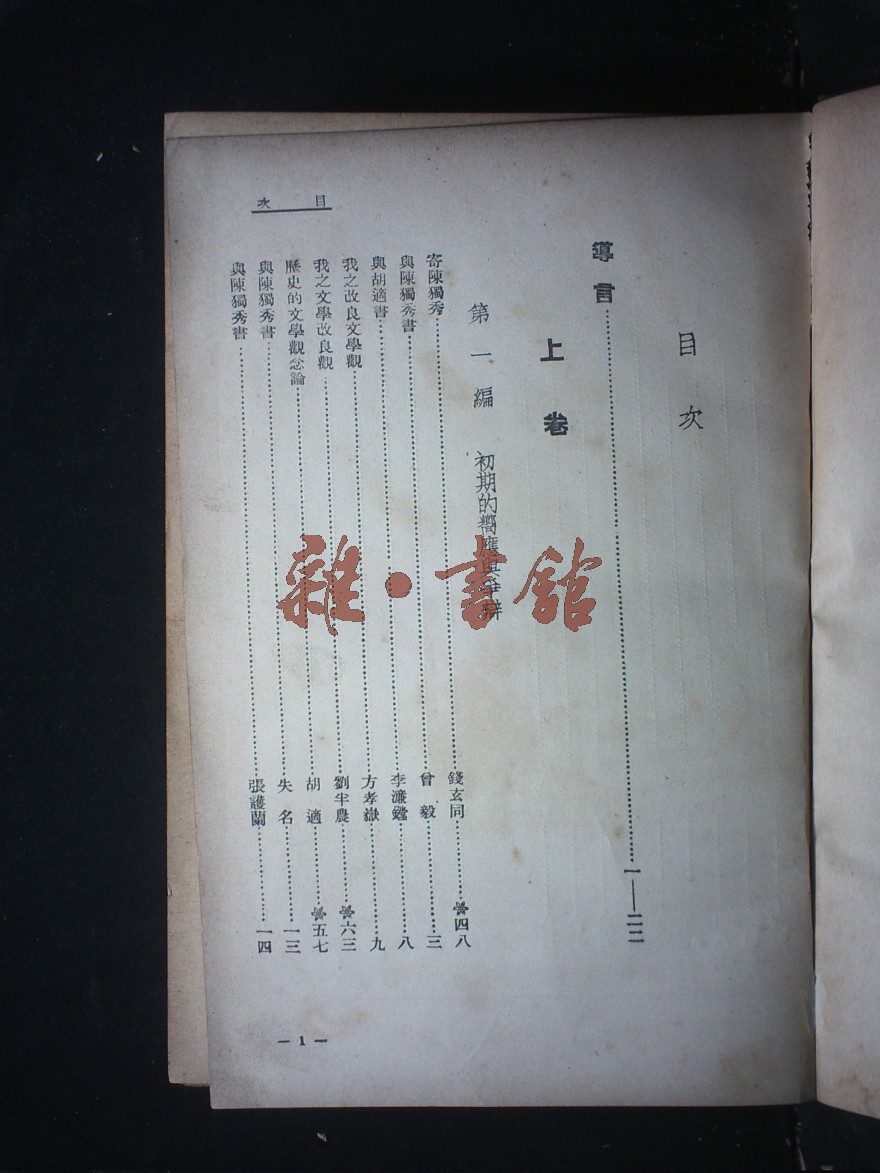 目次
導言……一——二二
上卷
第一編 初期的響應與爭辯
寄陳獨秀……錢玄同……※四八
與陳獨秀書……曾毅……三
與胡適書……李濂鏜……八
我之改良文學觀……方孝嶽……九
我之文學改良觀……劉半農……※六三
歷史的文學觀念論……胡適……※五七
與陳獨秀書……失名……一三
與陳獨秀書……張護蘭……一四
目次
— 1 —
雜·書館